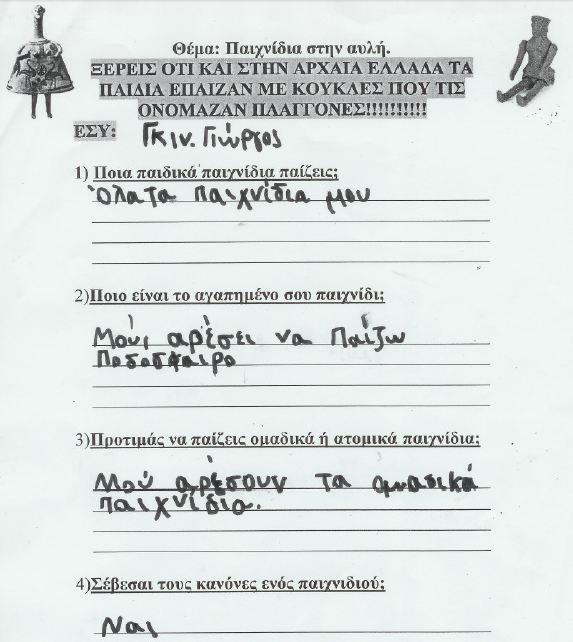 Θέμα: Παιχνίδια στην αυλή.
ΞΕΡΕΙΣ ΟΤΙ ΚΑΙ ΣΤΗΝ ΑΡΧΑΙΑ ΕΛΛΑΔΑ ΤΑ
ΠΑΙΔΙΑ ΕΠΑΙΖΑΝ ΜΕ ΚΟΥΚΛΕΣ ΠΟΥ ΤΙΣ
ΟΝΟΜΑΖΑΝ ΠΛΑΓΓΟΝΕΣ!!!!!!!!!!
ΕΣΥ: Γκιν. Γιώργος
1) Ποια παιδικά παιχνίδια παίζεις;
Όλα τα παιχνίδια μου
2)Ποιο είναι το αγαπημένο σου παιχνίδι;
Μού αρέσει να παίζω
ποδοσφαιρο
3)Προτιμάς να παίζεις ομαδικά ή ατομικά παιχνίδια;
Μού αρέσουν τα ομαδικά
παιχνίδια.
4)Σέβεσαι τους κανόνες ενός παιχνιδιού;
Ναι